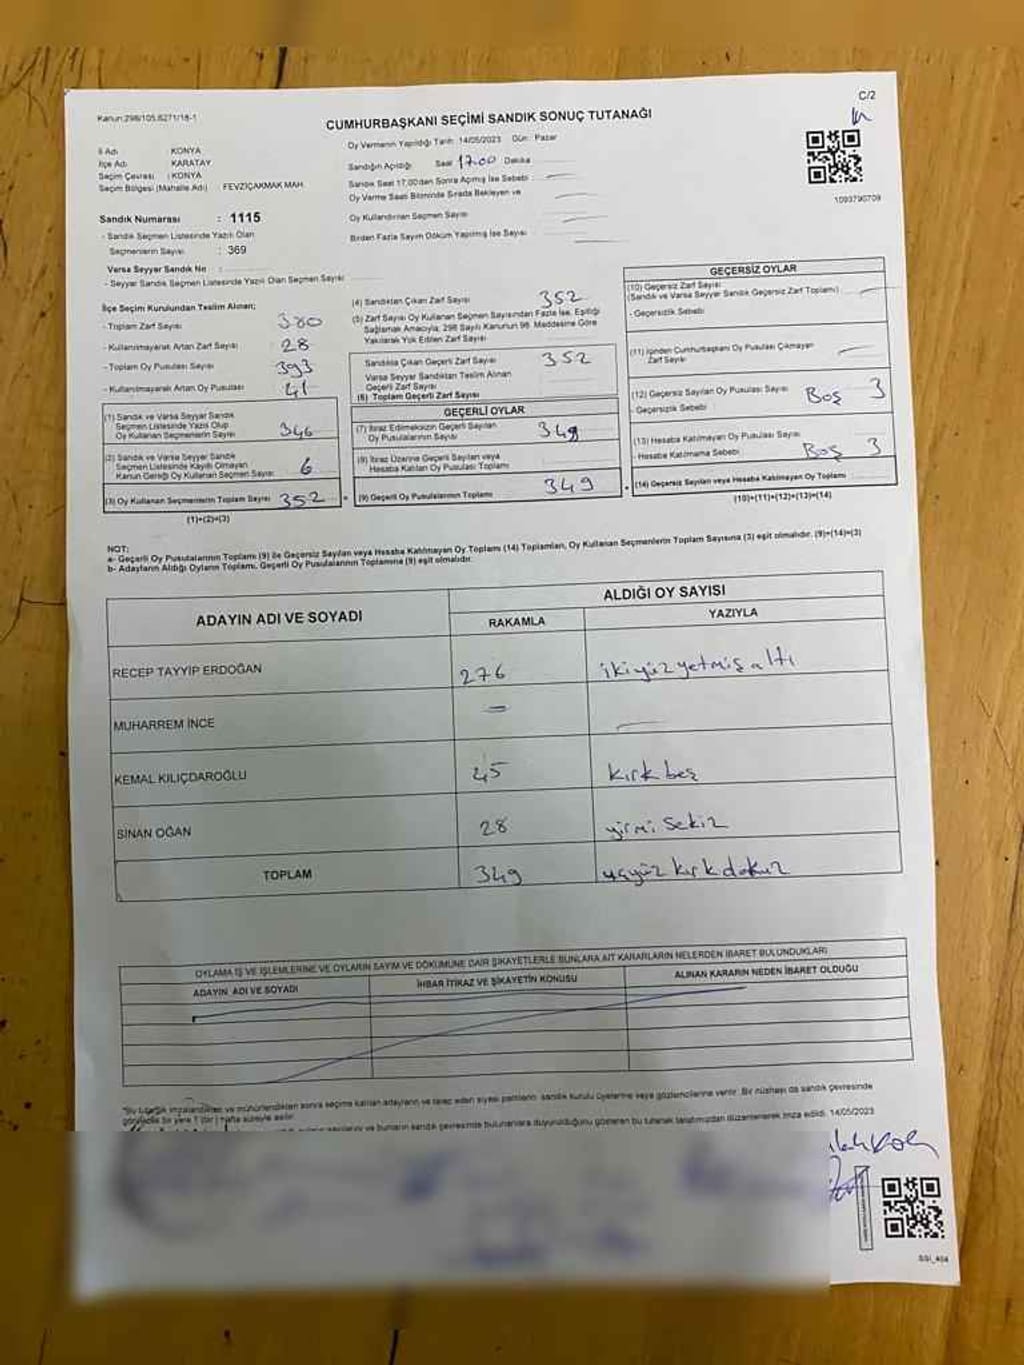 Kanun:298/105,6271/18-1
C/2
CUMHURBAŞKANI SEÇİMİ SANDIK SONUÇ TUTANAĞI
İl Adı : KONYA
İlçe Adı : KARATAY
Seçim Çevresi : KONYA
Seçim Bölgesi (Mahalle Adı) : FEVZİÇAKMAK MAH.
Sandık Numarası : 1115
- Sandık Seçmen Listesinde Yazılı Olan
Seçmenlerin Sayısı : 369
Varsa Seyyar Sandık No :
- Seyyar Sandık Seçmen Listesinde Yazılı Olan Seçmen Sayısı:
Oy Vermenin Yapıldığı Tarih: 14/05/2023 Gün: Pazar
Sandığın Açıldığı Saat 17.00 Dakika
Sandık Saat 17.00'den Sonra Açılmış İse Sebebi
Oy Verme Saati Bitiminde Sırada Bekleyen ve
Oy Kullandırılan Seçmen Sayısı
Birden Fazla Sayım Döküm Yapılmış İse Sayısı
1093790709
İlçe Seçim Kurulundan Teslim Alınan;
- Toplam Zarf Sayısı 380
- Kullanılmayarak Artan Zarf Sayısı 28
- Toplam Oy Pusulası Sayısı 393
- Kullanılmayarak Artan Oy Pusulası 41
(1) Sandık ve Varsa Seyyar Sandık
Seçmen Listesinde Yazılı Olup
Oy Kullanan Seçmenlerin Sayısı 346
(2) Sandık ve Varsa Seyyar Sandık
Seçmen Listesinde Kayıtlı Olmayan
Kanun Gereği Oy Kullanan Seçmen Sayısı 6
(3) Oy Kullanan Seçmenlerin Toplam Sayısı 352
(1)+(2)=(3)
(4) Sandıktan Çıkan Zarf Sayısı 352
(5) Zarf Sayısı Oy Kullanan Seçmen Sayısından Fazla İse, Eşitliği
Sağlamak Amacıyla, 298 Sayılı Kanunun 98. Maddesine Göre
Yakılarak Yok Edilen Zarf Sayısı
Sandıkta Çıkan Geçerli Zarf Sayısı 352
Varsa Seyyar Sandıktan Teslim Alınan
Geçerli Zarf Sayısı
(6) Toplam Geçerli Zarf Sayısı
GEÇERLİ OYLAR
(7) İtiraz Edilmeksizin Geçerli Sayılan
Oy Pusulalarının Sayısı 349
(8) İtiraz Üzerine Geçerli Sayılan veya
Hesaba Katılan Oy Pusulası Toplamı
(9) Geçerli Oy Pusulalarının Toplamı 349
GEÇERSİZ OYLAR
(10) Geçersiz Zarf Sayısı
(Sandık ve Varsa Seyyar Sandık Geçersiz Zarf Toplamı)
- Geçersizlik Sebebi
(11) İçinden Cumhurbaşkanı Oy Pusulası Çıkmayan
Zarf Sayısı
(12) Geçersiz Sayılan Oy Pusulası Sayısı Boş 3
- Geçersizlik Sebebi
(13) Hesaba Katılmayan Oy Pusulası Sayısı
- Hesaba Katılmama Sebebi Boş 3
(14) Geçersiz Sayılan veya Hesaba Katılmayan Oy Toplamı
(10)+(11)+(12)+(13)=(14)
NOT:
a- Geçerli Oy Pusulalarının Toplamı (9) ile Geçersiz Sayılan veya Hesaba Katılmayan Oy Toplamı (14) Toplamları, Oy Kullanan Seçmenlerin Toplam Sayısına (3) eşit olmalıdır. (9)+(14)=(3)
b- Adayların Aldığı Oyların Toplamı, Geçerli Oy Pusulalarının Toplamına (9) eşit olmalıdır.
ADAYIN ADI VE SOYADI
ALDIĞI OY SAYISI
RAKAMLA YAZIYLA
RECEP TAYYİP ERDOĞAN 276 ikiyüzyetmişaltı
MUHARREM İNCE —
KEMAL KILIÇDAROĞLU 45 kırkbeş
SİNAN OĞAN 28 yirmi sekiz
TOPLAM 349 üçyüz kırkdokuz
OYLAMA İŞ VE İŞLEMLERİNE VE OYLARIN SAYIM VE DÖKÜMÜNE DAİR ŞİKAYETLERLE BUNLARA AİT KARARLARIN NELERDEN İBARET BULUNDUKLARI
ADAYIN ADI VE SOYADI İHBAR İTİRAZ VE ŞİKAYETİN KONUSU ALINAN KARARIN NEDEN İBARET OLDUĞU
"Bu tutanak imzalandıktan ve mühürlendikten sonra seçime katılan adayların ve talep eden siyasi partilerin sandık kurulu üyelerine veya gözlemcilerine verilir. Bir nüshası da sandık çevresinde
görülecek bir yere 1 (bir) hafta süreyle asılır.
bunların sandık çevresinde bulunanlara duyurulduğunu gösteren bu tutanak tarafımızdan düzenlenerek imza edildi. 14/05/2023
SSI_404